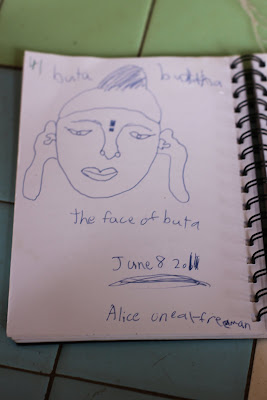 buta buddha
the face of buta
June 8 2011
Alice oneal-freeman